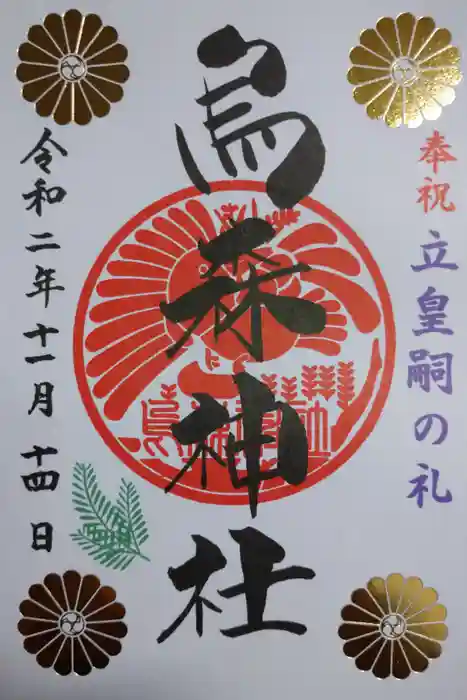 奉祝
立皇嗣の礼
烏森神社
令和二年十一月十四日